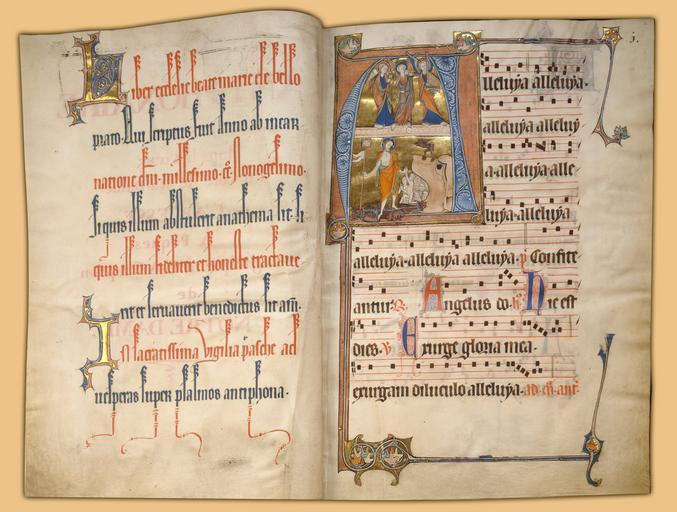 Liber ecclesie beate marie de bello
prato. Qui scriptus fuit Anno ab incar
natione dni. millesimo. cc. Nonogesimo.
si quis illum abstulerit anathema sit. si
quis illum fideliter et honeste tractaue
rit et seruauerit benedictus sit. am.
In sacratissima vigilia pasche ad
uesperas super psalmos antiphona.
3.
Alleluya alleluya.
alleluya alleluy
a. alleluya alle
luya alleluya
alleluya. alleluya alleluya. p. Confite
antur. R. Angelus do. R. Hec est
dies. V. Exurge gloria mea.
exurgam diluculo alleluya. ad. cn. ant.